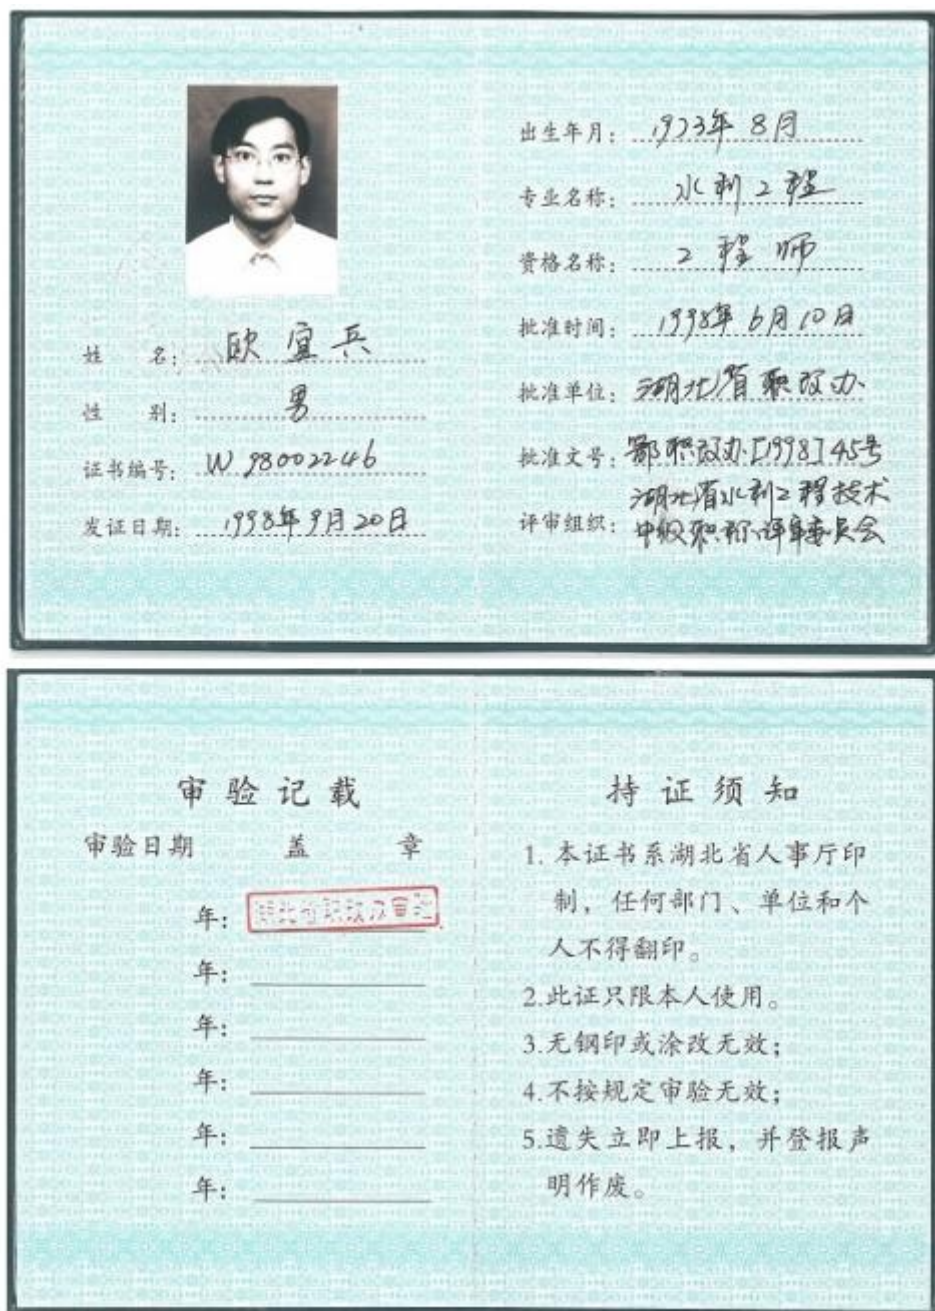 姓 名: 欧宜兵
性 别: 男
证书编号: W98002246
发证日期: 1998年9月20日
出生年月: 1973年8月
专业名称: 水利工程
资格名称: 工程师
批准时间: 1998年6月10日
批准单位: 湖北省职改办
批准文号: 鄂职改办[1998]45号
评审组织: 湖北省水利工程技术
中级职称评审委员会
审验记载
审验日期 盖 章
年: 湖北省职改办审验
年:
年:
年:
年:
年:
持证须知
1. 本证书系湖北省人事厅印
制，任何部门、单位和个
人不得翻印。
2.此证只限本人使用。
3.无钢印或涂改无效；
4.不按规定审验无效；
5.遗失立即上报，并登报声
明作废。